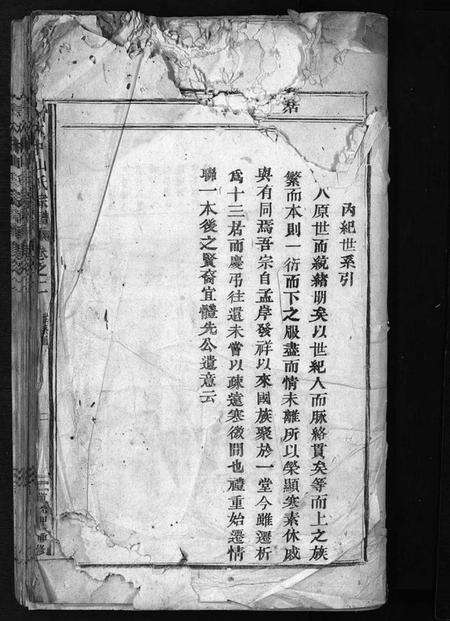 丙紀世系引
八原世而統緒明矣以世紀人而脈絡貫矣等而上之族
繁而本則一衍而下之服盡而情未離所以榮顯寒素休戚
與有同焉吾宗自孟岸發祥以來國族聚於一堂今雖遷析
爲十三居而慶弔往還未嘗以疎遠寒微間也禮重始遷情
聯一本後之賢裔宜體先公遺意云
氏宗譜 卷之二
重修